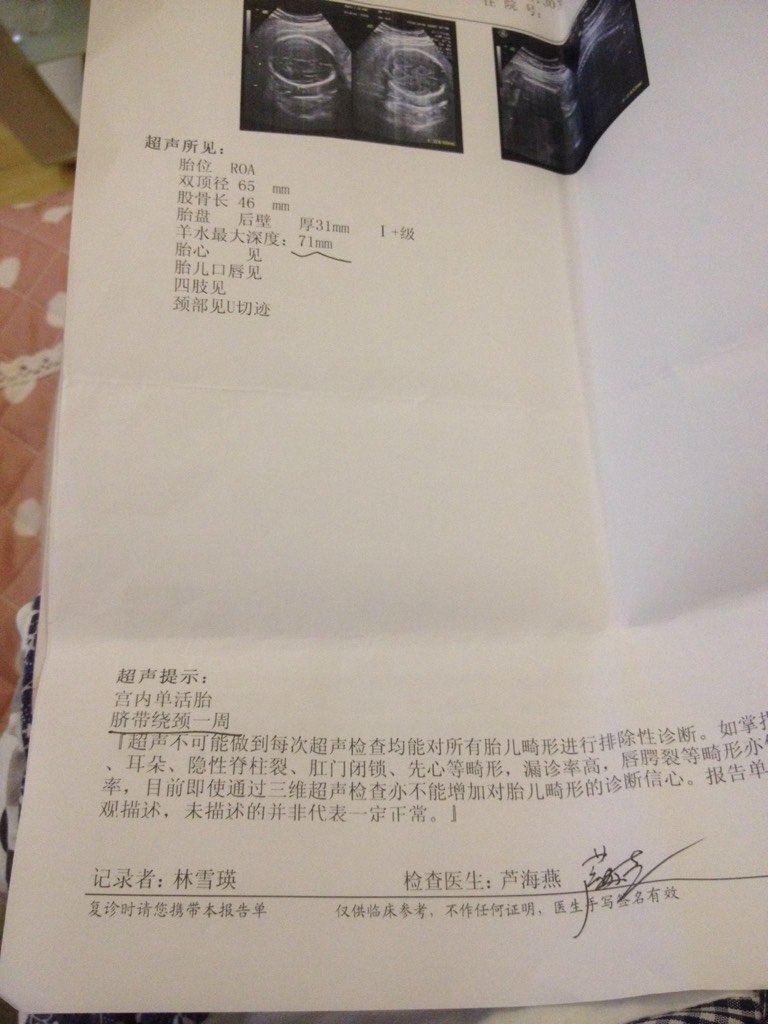 住院号:
超声所见:
胎位 ROA
双顶径 65 mm
股骨长 46 mm
胎盘 后壁 厚31mm Ⅰ+级
羊水最大深度: 71mm
胎心 见
胎儿口唇见
四肢见
颈部见U切迹
超声提示:
宫内单活胎
脐带绕颈一周
『超声不可能做到每次超声检查均能对所有胎儿畸形进行排除性诊断。如掌指
、耳朵、隐性脊柱裂、肛门闭锁、先心等畸形，漏诊率高，唇腭裂等畸形亦
率，目前即使通过三维超声检查亦不能增加对胎儿畸形的诊断信心。报告单
观描述，未描述的并非代表一定正常。』
记录者: 林雪瑛 检查医生: 芦海燕
复诊时请您携带本报告单 仅供临床参考，不作任何证明，医生手写签名有效